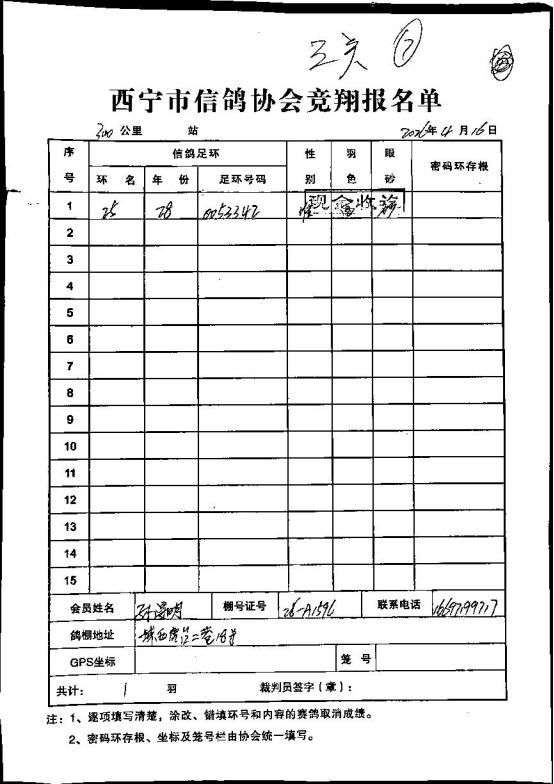 三关 ①
西宁市信鸽协会竞翔报名单
300公里 站 2026年4月16日
序号 信鸽足环 性别 羽色 眼砂 密码环存根
环名 年份 足环号码
1 25 28 0053342 雄 现金收讫
2
3
4
5
6
7
8
9
10
11
12
13
14
15
会员姓名 明 棚号证号 28-A1596 联系电话 16697199717
鸽棚地址 城西 二 18号
GPS坐标 笼号
共计: 1 羽 裁判员签字(章):
注:1、逐项填写清楚,涂改、错填环号和内容的赛鸽取消成绩。
2、密码环存根、坐标及笼号栏由协会统一填写。